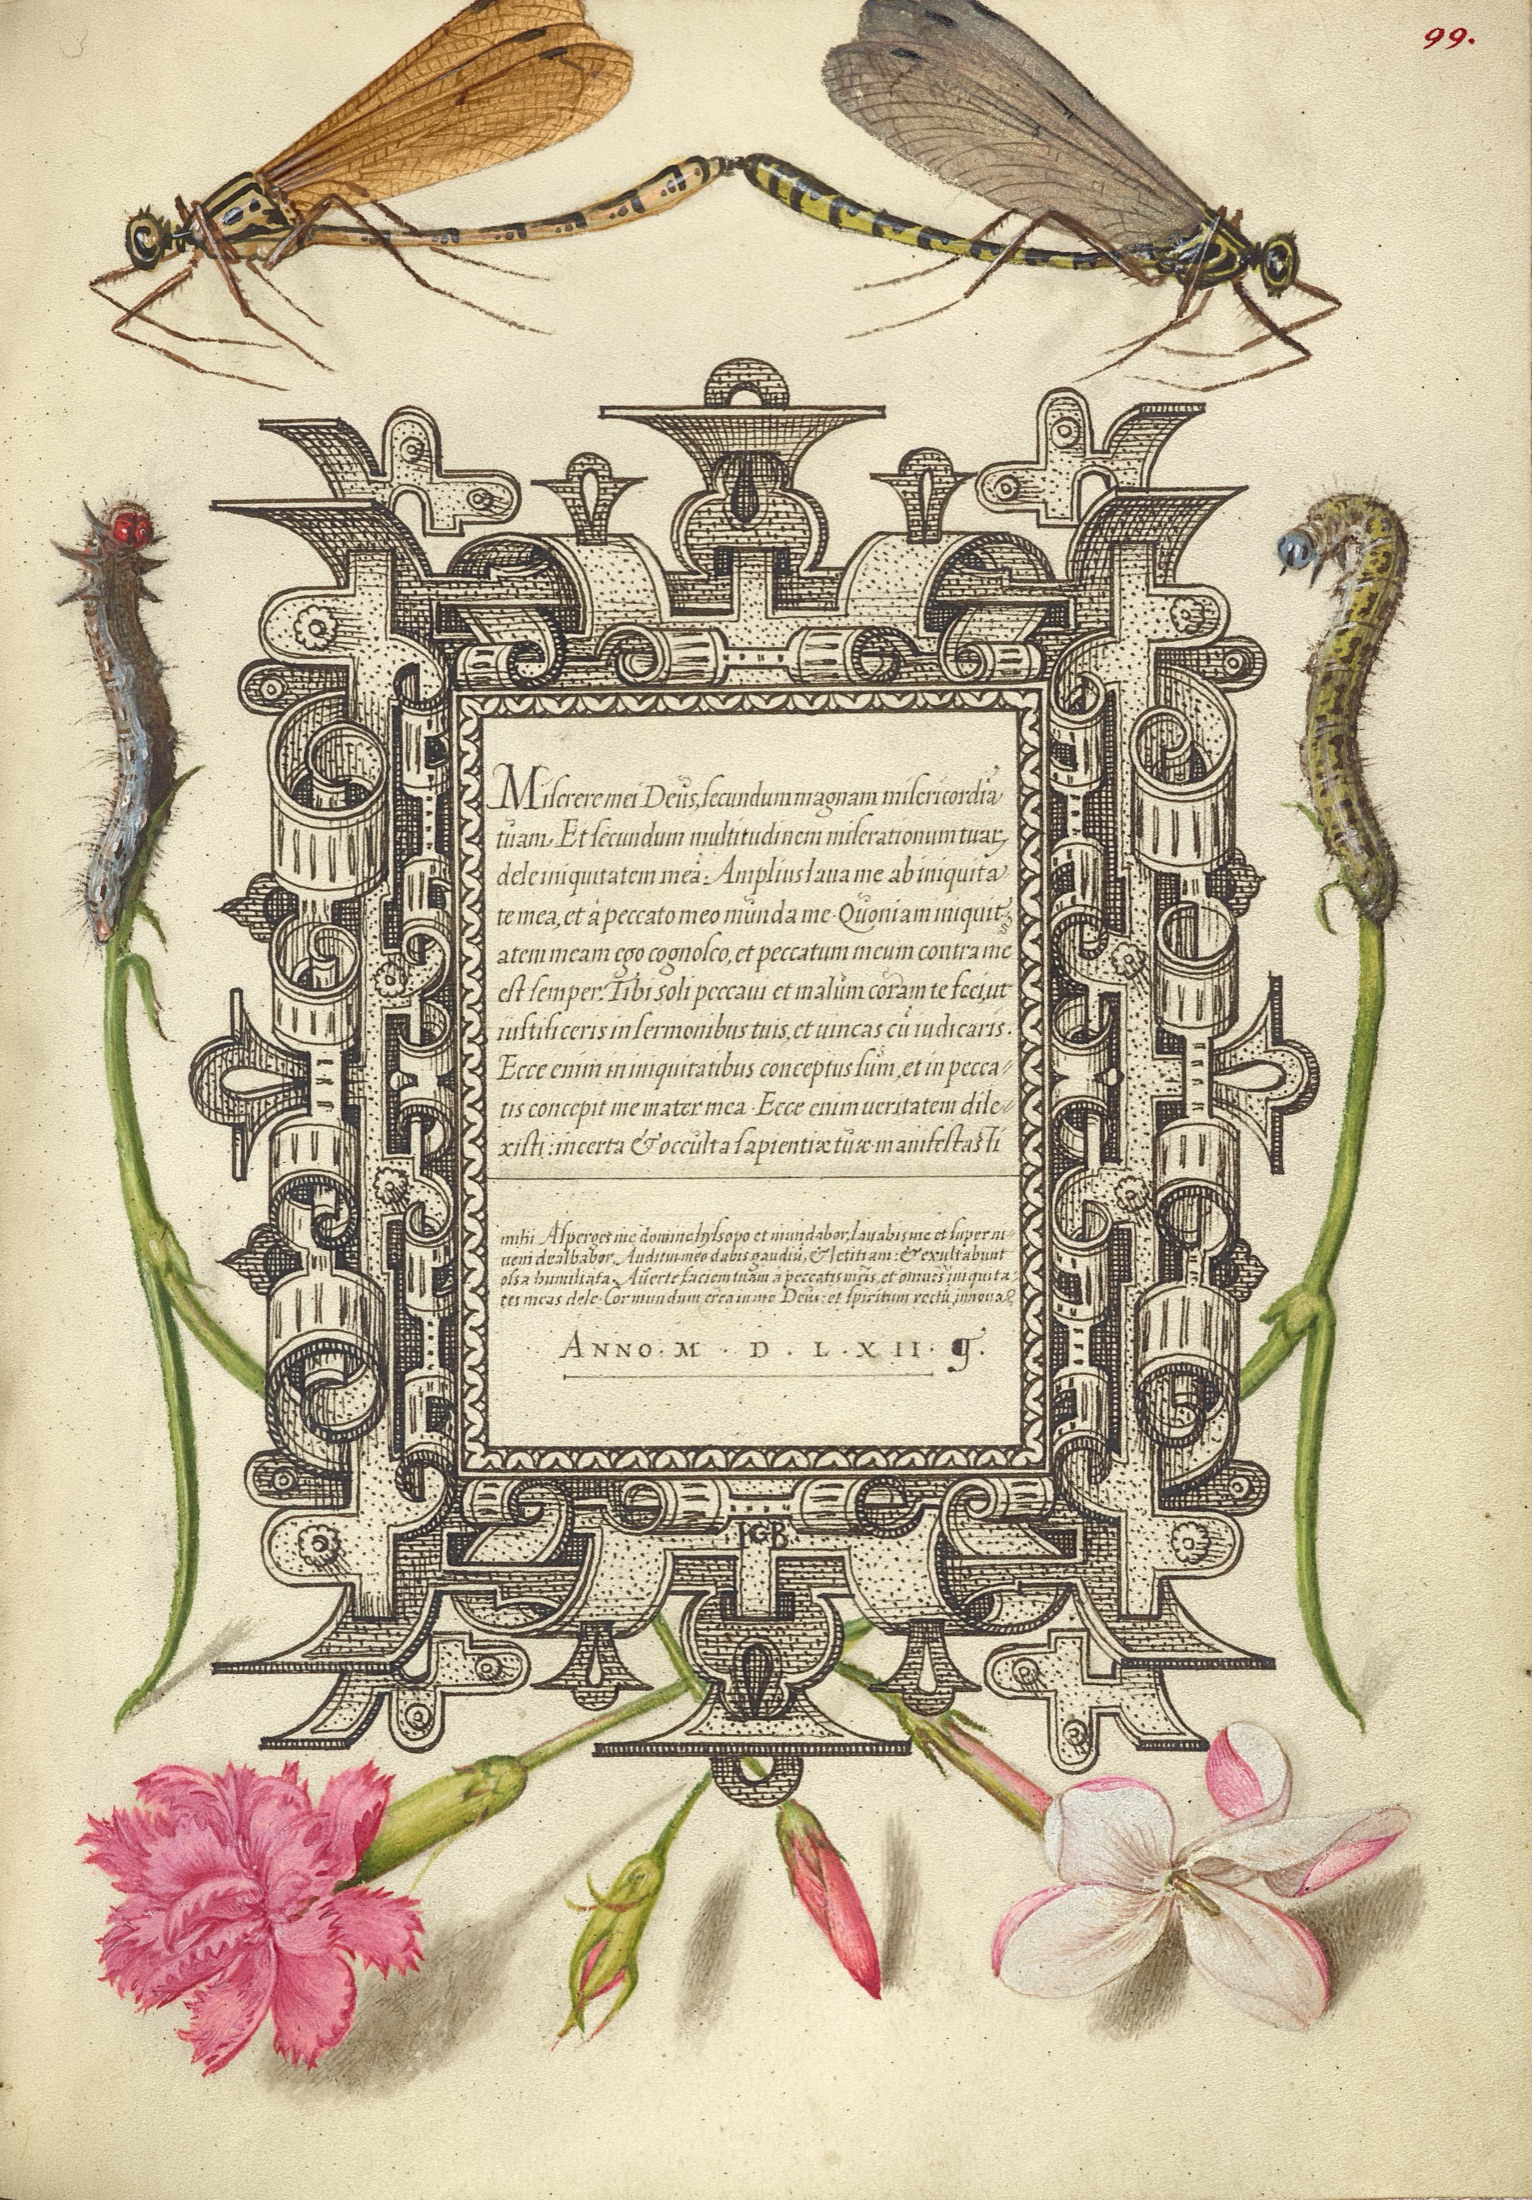 99.
Miserere mei Deus, secundum magnam misericordiā
tuam. Et secundum multitudinem miserationum tuar,
dele iniquitatem meā. Amplius laua me ab iniquita
te mea, et à peccato meo munda me. Quoniam iniquit⸗
atem meam ego cognosco, et peccatum meum contra me
est semper. Tibi soli peccaui et malum coram te feci, ut
iustificeris in sermonibus tuis, et uincas cū iudicaris.
Ecce enim in iniquitatibus conceptus sum, et in pecca⸗
tis concepit me mater mea. Ecce enim ueritatem dile⸗
xisti: incerta & occulta sapientiæ tuæ manifestasti
mihi Asperges me domine hysopo et mundabor, lauabis me et super ni⸗
uem dealbabor. Auditui meo dabis gaudiū, & letitiam: & exultabunt
ossa humiliata. Auerte faciem tuam à peccatis meis, et omnes iniquita⸗
tes meas dele. Cor mundum crea in me Deus: et spiritum rectū innoua &
ANNO. M . D . L . X II . g.
IGB